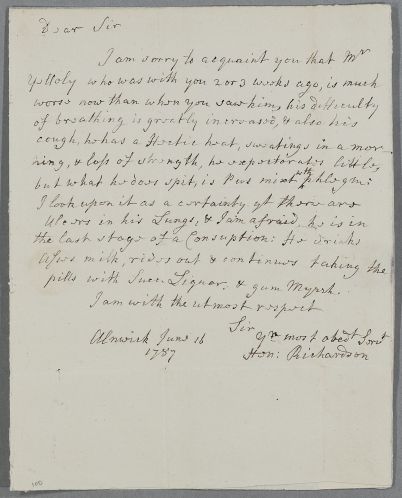 Dear Sir
I am sorry to acquaint you that Mr
Yelloly who was with you 2 or 3 weeks ago, is much
worse now than when you saw him, his difficulty
of breathing is greatly increased, & also his
cough, he has a Hectic heat, sweatings in a mor
ning, & loss of strength, he expectorates little,
but what he does spit, is Pus mixt wth phlegm:
I look upon it as a certainty yt there are
Ulcers in his Lungs, & I am afraid he is in
the last stage of a Consuption: He drinks
Asses milk, rides out & continues taking the
pills with Succ: Liquor. & gum Myrrh.
I am with the utmost respect
Sir
Yr most obedt Servt
Alnwick June 16
1757
Hen: Richardson
100